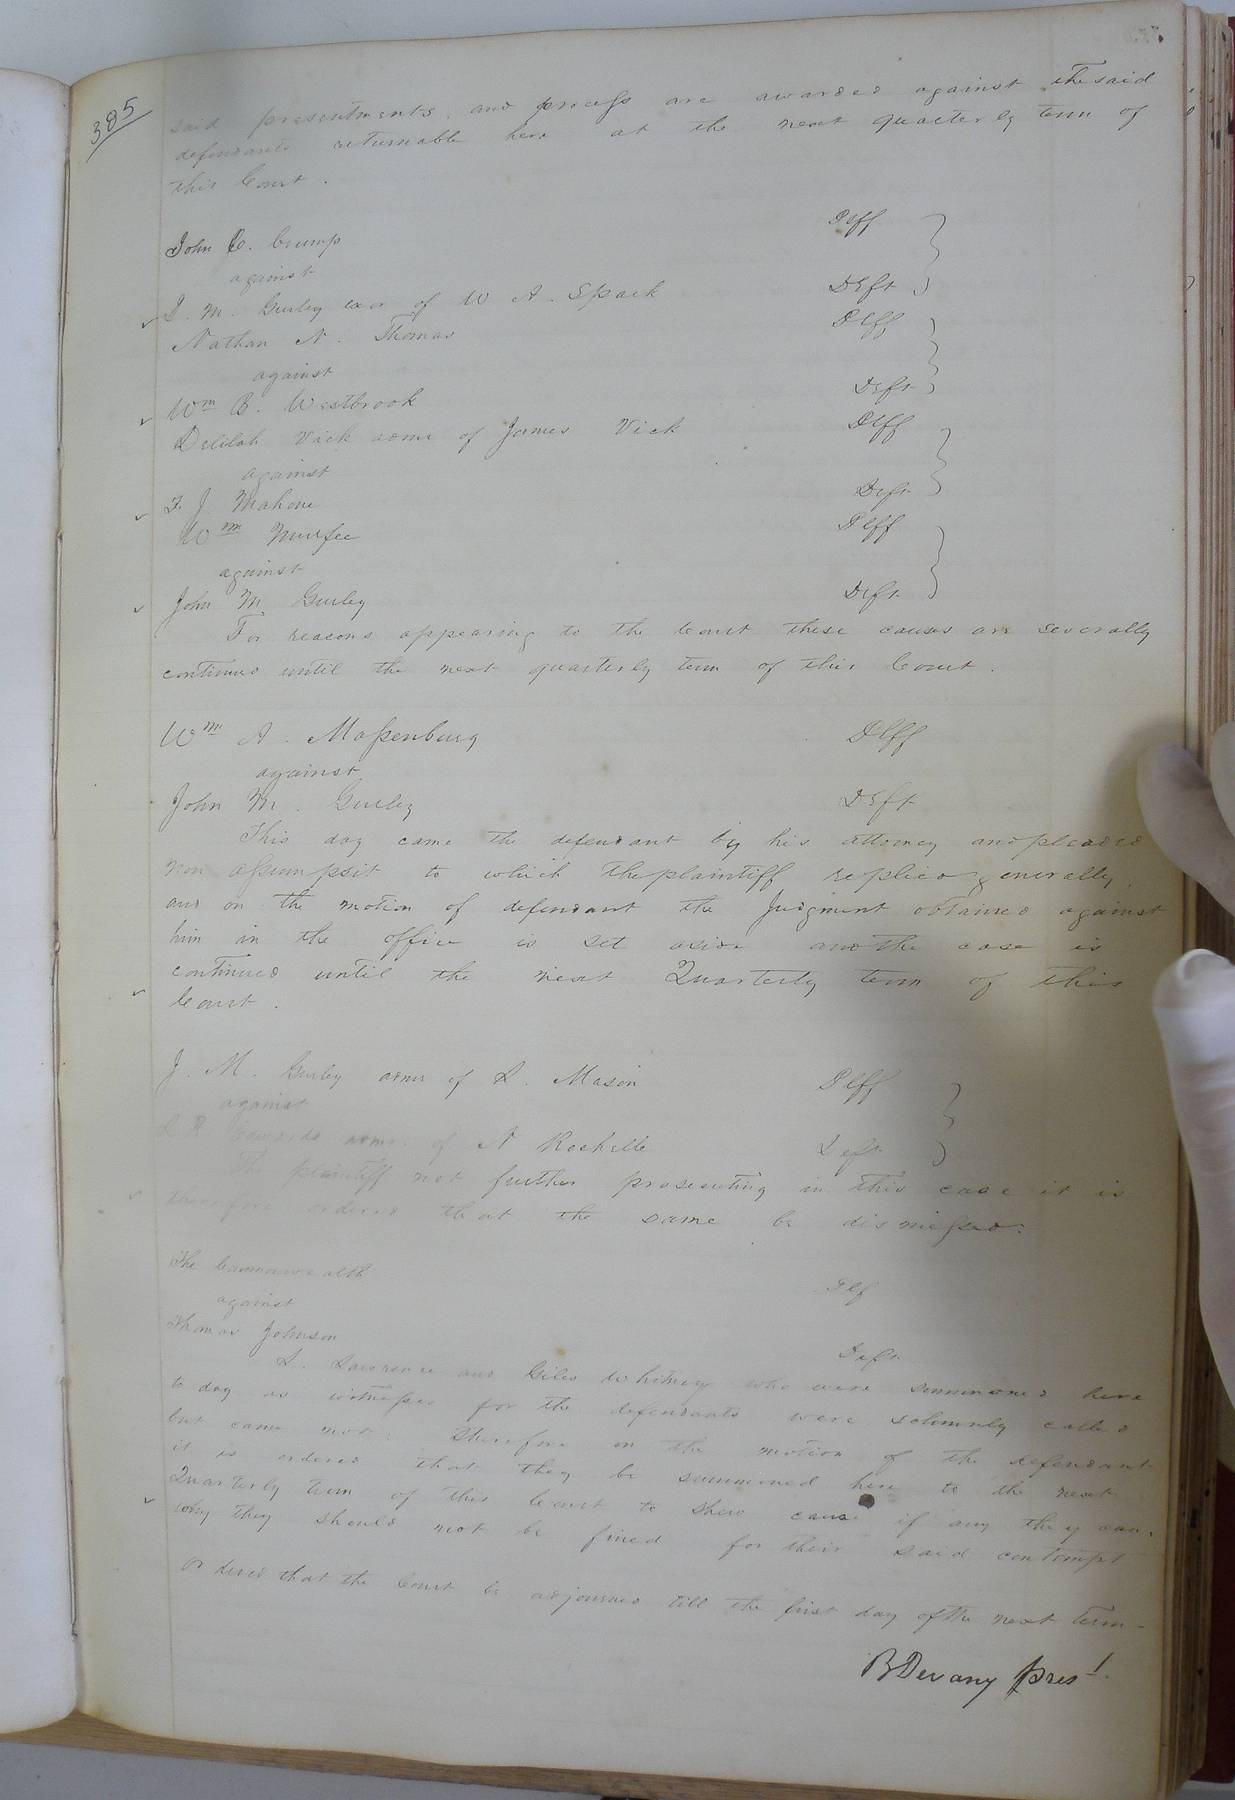 385
said presentments, and process are awarded against the said
defendants returnable here at the next quarterly term of
this Court.
John C. Crump Plff
against
J. M. Gurley exor of W A. Spark Deft
Nathan N. Thomas Plff
against
Wm B. Westbrook Deft
Delilah Vick admr of James Vick Plff
against
F. J. Mahone Deft
Wm Murfee Plff
against
John M Gurley Deft
For reasons appearing to the Court these causes are severally
continued until the next quarterly term of this Court.
Wm A. Massenburg Plff
against
John M. Gurley Deft
This day came the defendant by his attorney and pleaded
non assumpsit to which the plaintiff replied generally,
and on the motion of defendant the Judgment obtained against
him in the office is set aside and the case is
continued until the next Quarterly term of this
Court.
J. M. Gurley admr of L. Mason Plff
against
L R Edwards admr. of N Rochelle Deft
The plaintiff not further prosecuting in this case it is
therefore ordered that the same be dismissed.
The Commonwealth Plf
against
Thomas Johnson Deft
L. Lawrence and Giles Whitney who were summoned here
to day as witnesses for the defendants were solemnly called
but came not: Therefore on the motion of the defendant
it is ordered that they be summoned here to the next
Quarterly term of this Court to shew cause if any they can,
why they should not be fined for their said contempt
Ordered that the Court be adjourned till the first day of the next Term-
B Devany Prest.